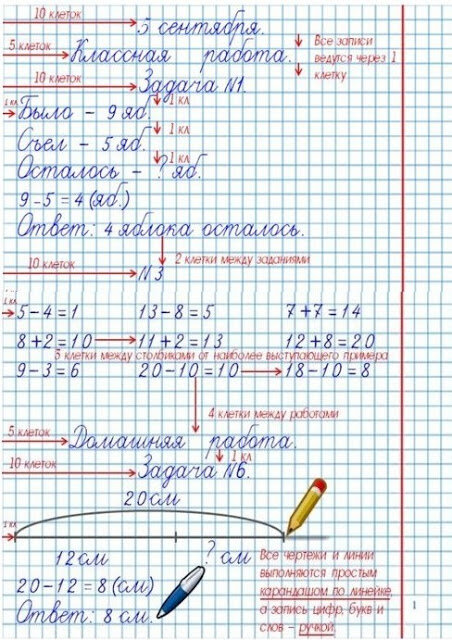 10 клеток 5 сентября.
5 клеток Классная работа. Все записи
ведутся через 1
клетку
10 клеток Задача №1.
1 кл Было – 9 яб. 1 кл
Съел – 5 яб. 1 кл
Осталось – ? яб. 1 кл
9 – 5 = 4 (яб.)
Ответ: 4 яблока осталось.
2 клетки между заданиями
10 клеток №3
1 кл 5 – 4 = 1 13 – 8 = 5 7 + 7 = 14
8 + 2 = 10 11 + 2 = 13 12 + 8 = 20
3 клетки между столбиками от наиболее выступающего примера
9 – 3 = 6 20 – 10 = 10 18 – 10 = 8
4 клетки между работами
5 клеток Домашняя работа.
1 кл
10 клеток Задача №6.
20 см
1 кл
12 см ? см
Все чертежи и линии
выполняются простым
карандашом по линейке,
а запись цифр, букв и
слов – ручкой
20 – 12 = 8 (см)
Ответ: 8 см.
1